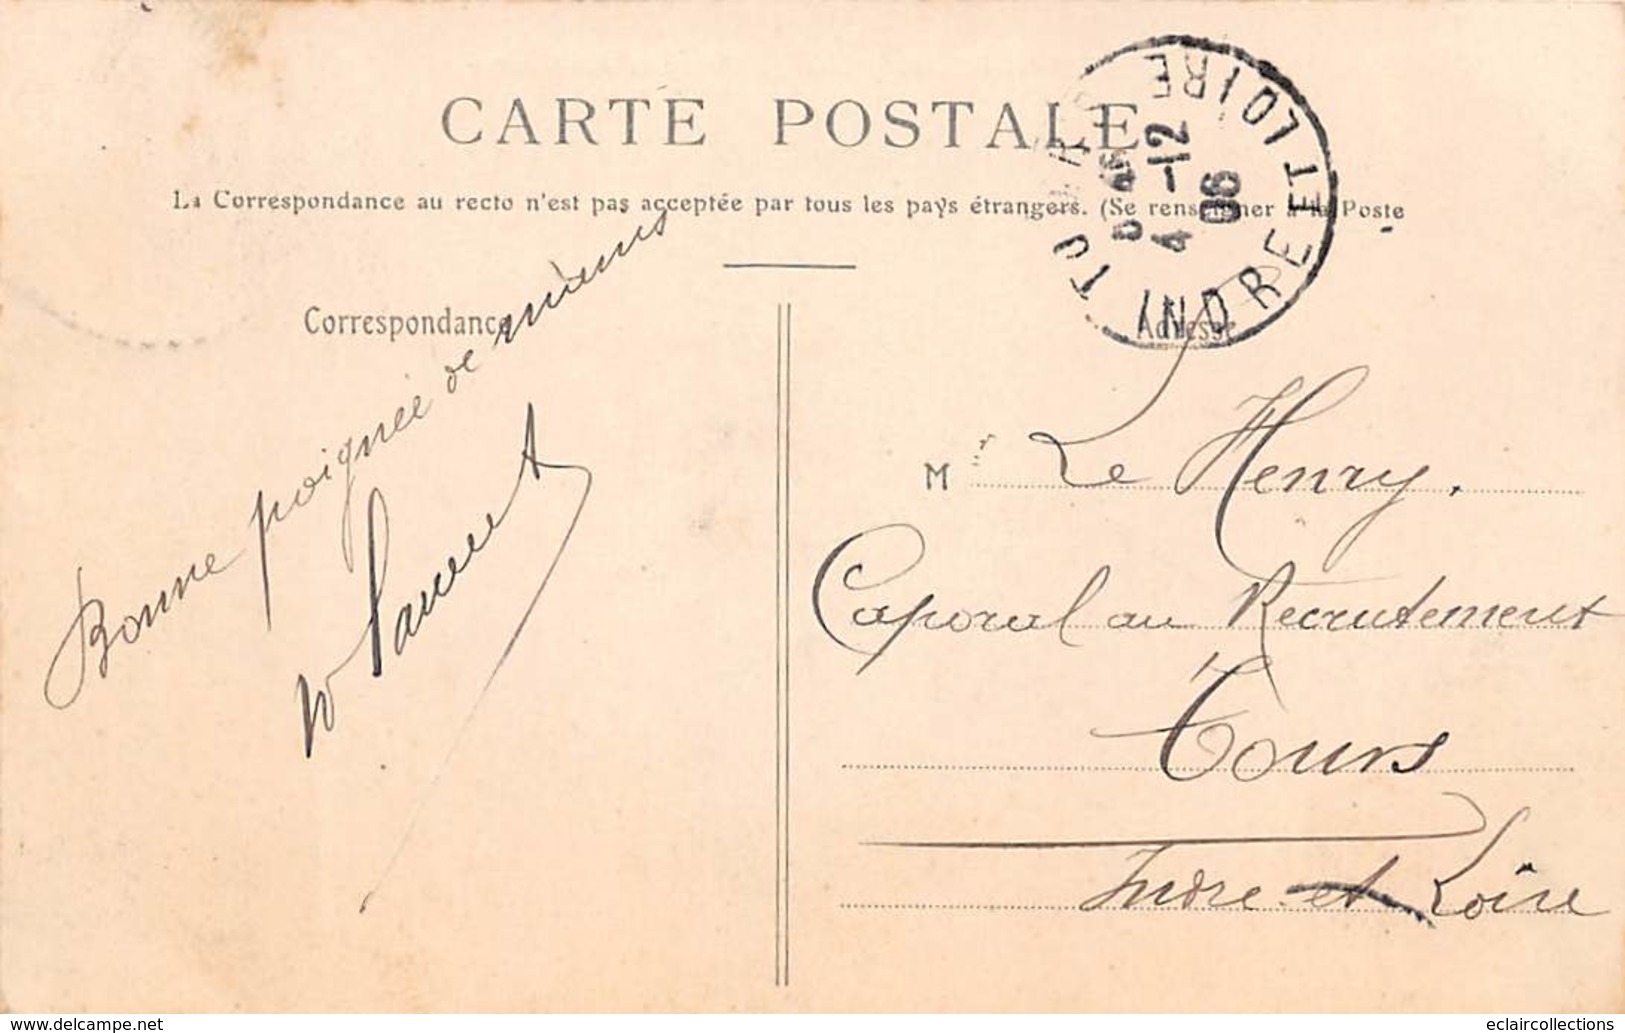 CARTE POSTALE
La Correspondance au recto n'est pas acceptée par tous les pays étrangers. (Se renseigner à la Poste
TOURS
INDRE ET LOIRE
4 -12
06
Correspondance
Adresse
Bonne poignée de mains
M Le Henry.
Caporal au Recrutement
Tours
Indre et Loire
eclaircollections
www.delcampe.net